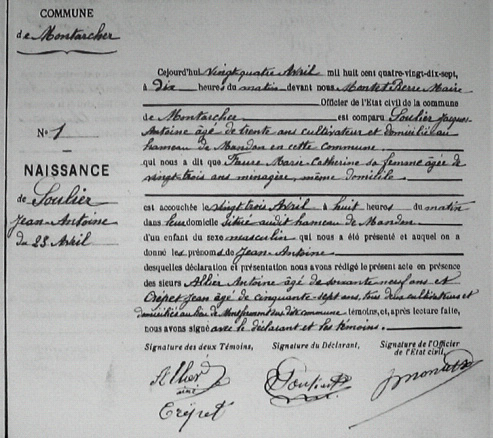 COMMUNE
de Montarcher
No 1
NAISSANCE
de Soulier
Jean-Antoine
du 23 Avril
Cejourd'hui vingt quatre Avril mil huit cent quatre-vingt-dix-sept,
à Dix heures du matin devant nous Montet Pierre Maire
Officier de l'Etat civil de la commune
de Montarcher est comparu Soulier Jacques
Antoine âgé de trente ans cultivateur et domicilié au
hameau de Mandon en cette Commune
qui nous a dit que Faure Marie-Catherine sa femme âgée de
vingt-trois ans ménagère, même domicile
est accouchée le vingt trois Avril à huit heures du matin
dans leur domicile Sitüé audit hameau de Mandon
d'un enfant du sexe masculin qui nous a été présenté et auquel on a
donné les prénoms de Jean-Antoine
desquelles déclaration et présentation nous avons rédigé le présent acte en présence
des sieurs Allier Antoine âgé de soixante neuf ans et
Crépet Jean âgé de cinquante sept ans, tous deux cultivateurs et
domiciliés au lieu de commune témoins, et, après lecture faite,
nous avons signé avec le déclarant et les témoins.
Signature des deux Témoins, Signature du Déclarant, Signature de l'Officier
de l'Etat civil,
Allier Soulier
ainé
Crépet